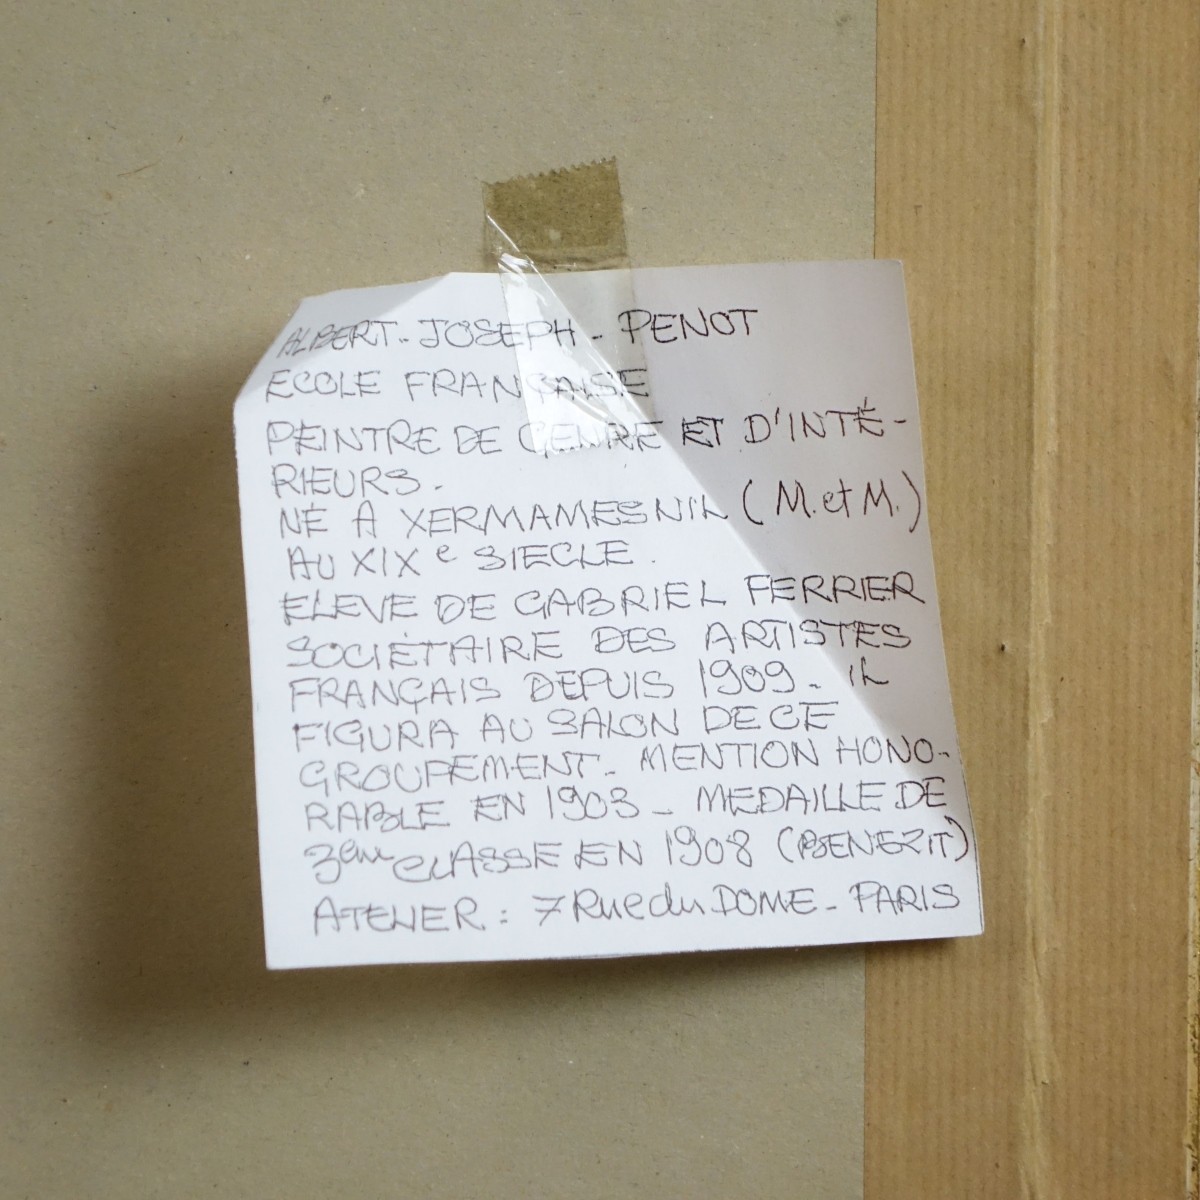 ALBERT-JOSEPH-PENOT
ECOLE FRANÇAISE
PEINTRE DE GENRE ET D'INTÉ-
RIEURS.
NÉ À XERMAMESNIL (M. et M.)
AU XIXe SIECLE.
ELEVE DE GABRIEL FERRIER
SOCIÉTAIRE DES ARTISTES
FRANÇAIS DEPUIS 1909 - IL
FIGURA AU SALON DE CE
GROUPEMENT - MENTION HONO-
RABLE EN 1903 - MEDAILLE DE
3eme CLASSE EN 1908 (BENEZIT)
ATELIER : 7 Rue du DOME - PARIS